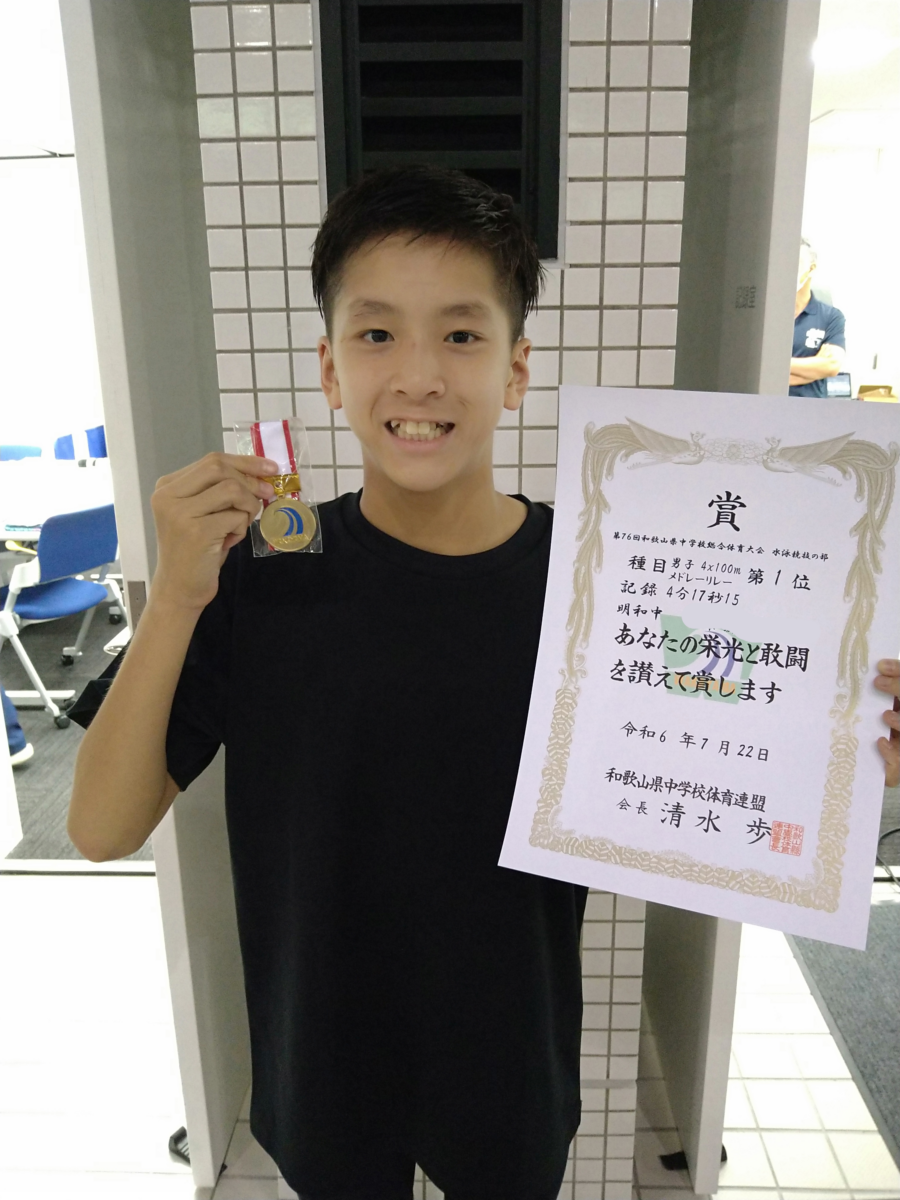 賞
第76回和歌山県中学校総合体育大会 水泳競技の部
種目 男子 4x100m メドレーリレー 第1位
記録 4分17秒15
明和中
あなたの栄光と敢闘
を讃えて賞します
令和6年7月22日
和歌山県中学校体育連盟
会長 清水 歩